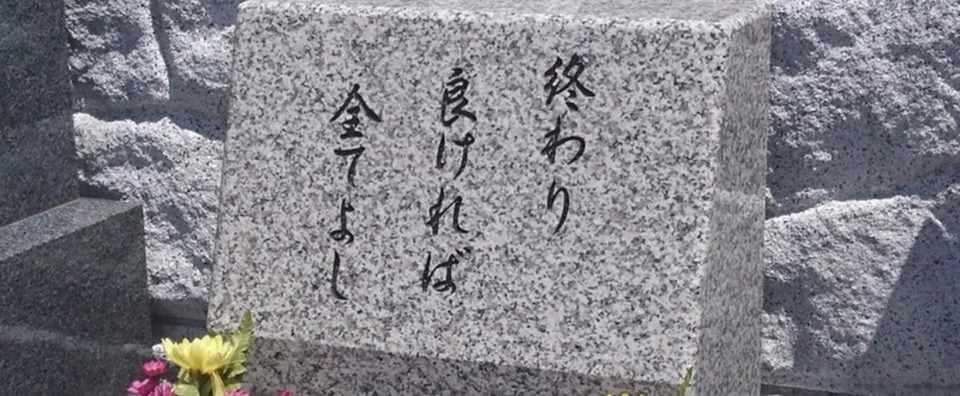 終わり
良ければ
全てよし